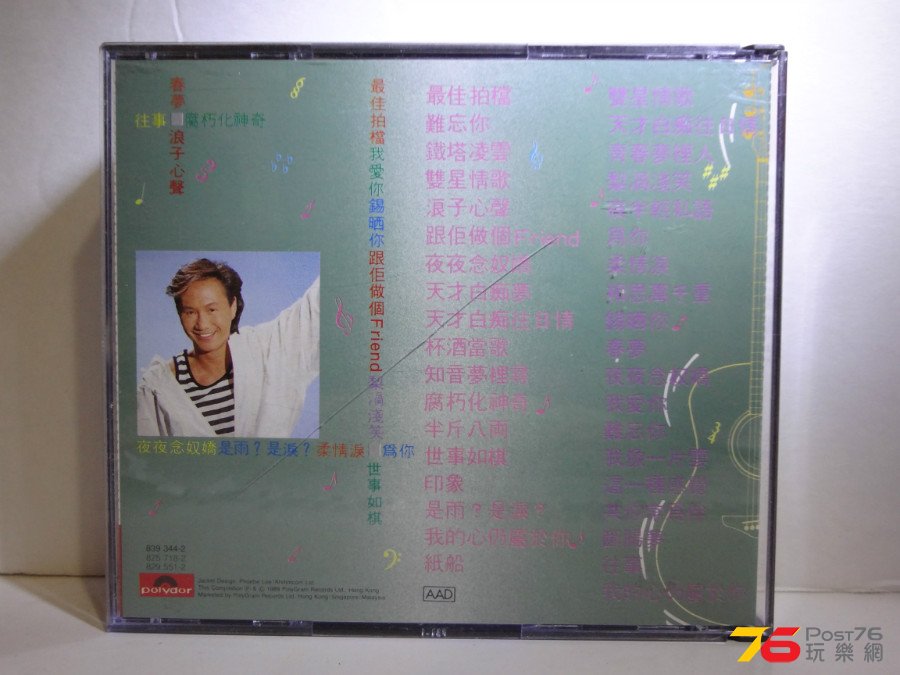 春夢
往事 腐朽化神奇
浪子心聲
最佳拍檔 我愛你 錫晒你 跟佢做個Friend 梨渦淺笑 世事如棋
夜夜念奴嬌 是雨?是淚? 柔情淚 為你
最佳拍檔
難忘你
鐵塔凌雲
雙星情歌
浪子心聲
跟佢做個Friend
夜夜念奴嬌
天才白痴夢
天才白痴往日情
杯酒當歌
知音夢裡尋
腐朽化神奇
半斤八両
世事如棋
印象
是雨?是淚?
我的心仍屬於你
紙船
雙星情歌
天才白痴往日情
梨渦淺笑
為你
柔情淚
錫晒你
春夢
夜夜念奴嬌
我愛你
難忘你
往事
839 344-2
825 718-2
829 551-2
polydor
Jacket Design: Phoebe Lee/Andvision Ltd.
This Compilation Ⓟ & © 1989 PolyGram Records Ltd., Hong Kong
Marketed by PolyGram Records Ltd. Hong Kong/Singapore/Malaysia
AAD
76 Post76
玩樂網